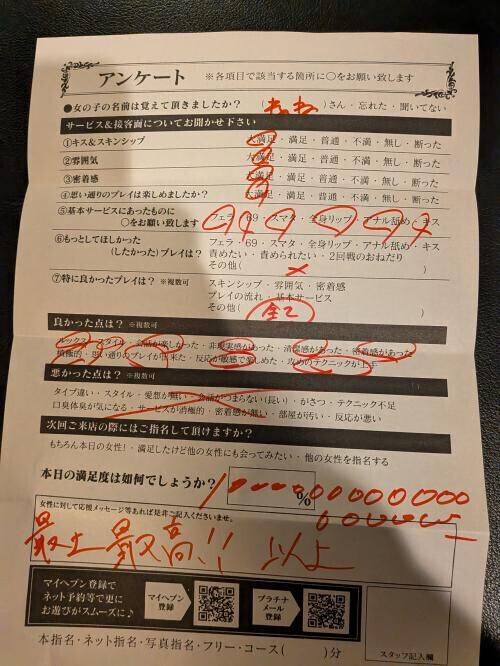 アンケート ※各項目で該当する箇所に○をお願い致します
●女の子の名前は覚えて頂きましたか？ ( )さん・忘れた・聞いてない
サービス&接客面についてお聞かせ下さい
①キス&スキンシップ 大満足・満足・普通・不満・無し・断った
②雰囲気 大満足・満足・普通・不満・無し・断った
③密着感 大満足・満足・普通・不満・無し・断った
④思い通りのプレイは楽しめましたか？ 大満足・満足・普通・不満・無し・断った
⑤基本サービスにあったものに
○をお願い致します フェラ・69・スマタ・全身リップ・アナル舐め・キス
⑥もっとしてほしかった フェラ・69・スマタ・全身リップ・アナル舐め・キス
(したかった)プレイは？ 責めたい・責められたい・2回戦のおねだり
その他( × )
⑦特に良かったプレイは？ ※複数可 スキンシップ・雰囲気・密着感
プレイの流れ・基本サービス
その他( 全て )
良かった点は？ ※複数可
ルックス・スタイル・会話が楽しかった・非現実感があった・清潔感があった・密着感があった
積極的・思い通りのプレイが出来た・反応が敏感で楽しめた・攻めのテクニックが上手
悪かった点は？ ※複数可
タイプ違い・スタイル・愛想が無い・会話がつまらない(長い)・がさつ・テクニック不足
口臭体臭が気になる・サービスが消極的・密着感が無い・部屋が汚い・反応が悪い
次回ご来店の際にはご指名して頂けますか？
もちろん本日の女性!・満足したけど他の女性にも会ってみたい・他の女性を指名する
本日の満足度は如何でしょうか？ %
女性に対して応援メッセージ等あれば是非ご記入くださいませ。
最高!! 以上
マイヘブン登録で
ネット予約等で更に
お遊びがスムーズに♪
マイヘブン
登録
プラチナ
メール
登録
本指名・ネット指名・写真指名・フリー・コース( )分
スタッフ記入欄